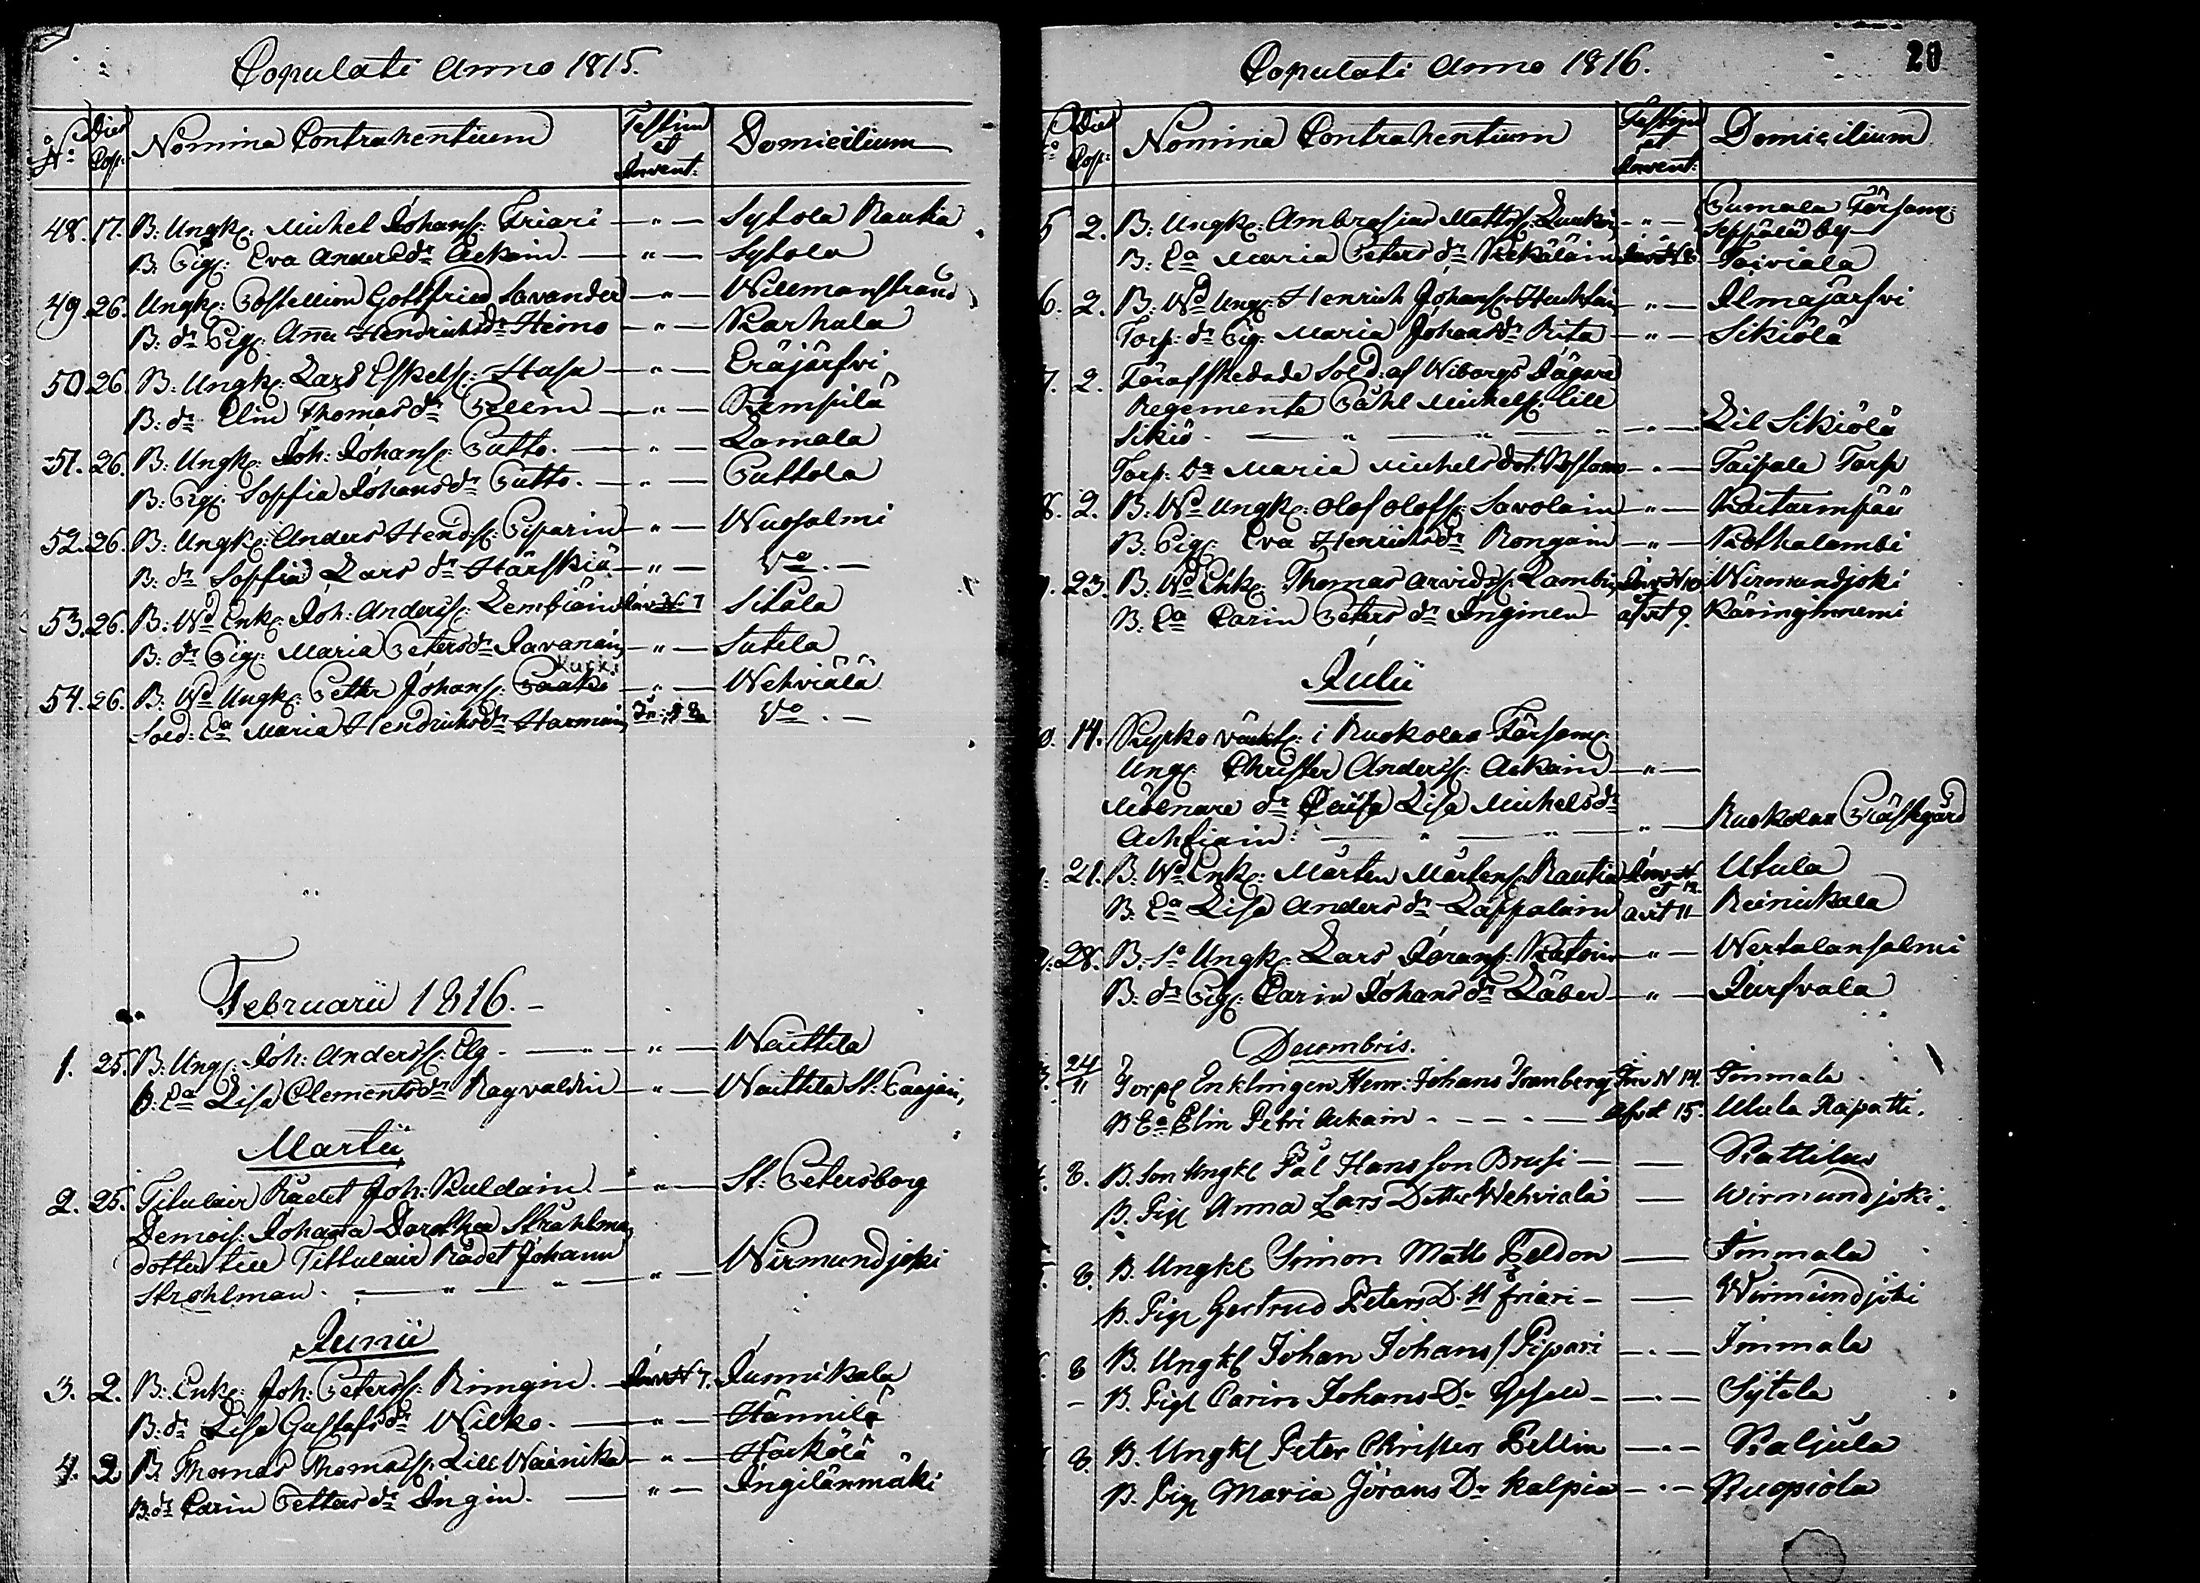 Copulati Anno 1815.
No Dies Cop: Nomina Contrahentium Testim et Invent: Domicilium
48. 17. B: Ungk: Michel Johans: Friari — " — Sytola Rautia
B. Pig: Eva Anders dr Ackain — " — Sytola
49. 26. Ungk: Postellion Gottfried Savander — " — Willmanstrand
B: dr Pig: Anna Hendrichs dr Heino — " — Karhala
50. 26. B: Ungk: Lars Eskels: Hasa — " — Eräjärfvi
B: dr Elin Thomas dr Pellin — " — Kempilä
51. 26. B: Ungk: Joh: Johans: Putto. — " — Lamala
B: Pig: Sophia Johans dr Putto. — " — Puttola
52. 26. B: Ungk: Anders Hends: Piparin — " — Wuosalmi
B: dr Sophia Lars dr Härskiä — " — Do. —
53. 26. B: Wd Enk: Joh: Anders: Lembiäin Inv: N: 7 Sitala
B: dr Pig: Maria Peters dr Davanain — " — Sutela
54. 26. B: Wd Ungk: Petter Johans: Kurki — " — Wehviälä
Sold: Ea Maria Hendrichs dr Harmain Do. —
Februarii 1816. —
1. 25. B: Ung: Joh: Anders: Elg. — " — Wäittilä
B: Ea Lisa Clements dr Ragvaldin — " — Waittila St:
Martii
2. 25. Titulair Rådet Joh: Kuldain. — " — St: Petersborg
Demois: Johana Dorothea Strahlman
dotter till Tittulair Rådet Johann
Strohlman. — " — " — " — Wirmundjoki
Junii
3. 2. B: Enk: Joh: Peters: Rimgin. — Inv N 7. Junnikala
B: dr Lisa Gustafs dr Wilke. — " — Hännilä
4. 2 B. Thomas Thomas: Lill Wainika — " — Härkölä
B: dr Carin Petters dr Ingin. — " — Ingilänmäki
Copulati Anno 1816. 20
No Dies Cop: Nomina Contrahentium Testim et Invent: Domicilium
5 2. B: Ungk: Ambrosius Matts: — " — Pumala Församl:
by
B: Ea Maria Peters dr Kekäläin Taiviala
6. 2. B: Wd Ung: Henrich Johans: — " — Ilmajärfvi
Torp: dr Pig: Maria Johans dr Rita — " — Sikiölä
7. 2. Förafskedade Sold: af Wiborgs Jägare
Regemente Påhl Michels: Lill
Sikiö. — " — " — " — Lil Sikiölä
Torp: Dr Maria Michels dot: — " — Taipale Torp
8. 2. B: Wd Ungk: Olof Olofs: Savolain — " — Kaitarmpää
B: Pig: Eva Henrichs dr Rongain — " — Kolhalambi
9. 23. B: Wd Enk: Thomas Arvids: Lambin Inv N 10 Wirmundjoki
B: Ea Carin Peters dr Inginen afvit 9. Käringiniemi
Julii
0. 14. i Ruokolax Församl:
Ung: Christer Anders: Ackain — " —
Mölnare dr Lisa Michels dr
Achtiain: — " — " — " — Ruokolax Prästgård
21. B: Wd Enk: Mårten Mårtens: Rautia Inv N 12 Utula
B: Ea Lisa Anders dr Lappalain avit 11 Reinikala
28. B: So Ungk: Lars Jörans: Katoin — " — Wertalansalmi
B: dr Pig: Carin Johans dr Läber — " — Järfvala
Decembris.
24/11 Torp: Enklingen Henr: Johans Tranberg Inv N 14. Immala
B Ea Elin Petri Ackain - - - - Afvt 15. Utula Rapatti.
8. B. Son Ungkl Pål Hansson Brusi — — Rattilax
B. Pigl Anna Lars Dotter Wehviala — Wirmundjoki.
8. B. Ungkl Simon Matts Peldon — Immala
B. Pigl Gertrud Peters Dr friari — — Wirmundjoki
8 B. Ungkl Johan Johans/Pipari — . — Immala
- B. Pigl Carin Johans Dr — . — Sytela
8. B. Ungkl Peter Christers Pellin — . — Kaljula
B. Pigl Maria Jörans Dr Kalpia — . — Ruopiola